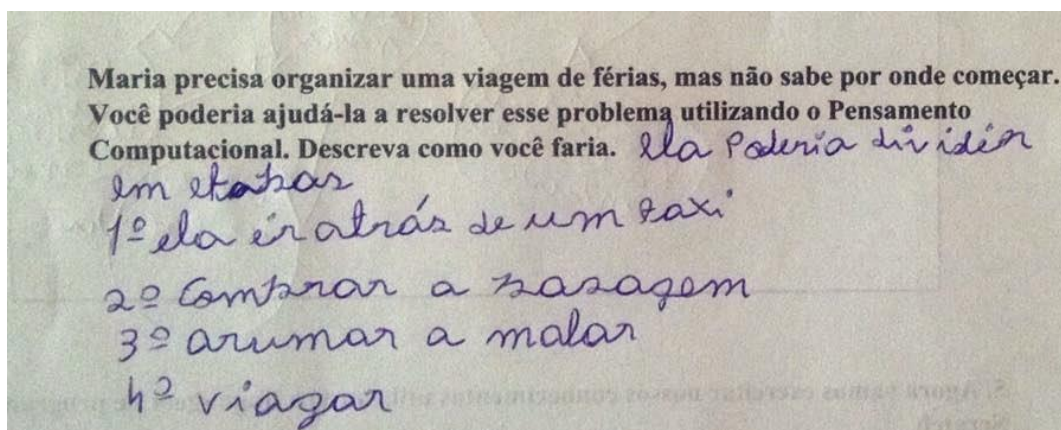 Maria precisa organizar uma viagem de férias, mas não sabe por onde começar.
Você poderia ajudá-la a resolver esse problema utilizando o Pensamento
Computacional. Descreva como você faria. Ela Poderia dividir
em etapas
1º ela ir atrás de um taxi
2º Comprar a pasagem
3º arumar a malar
4º viagar